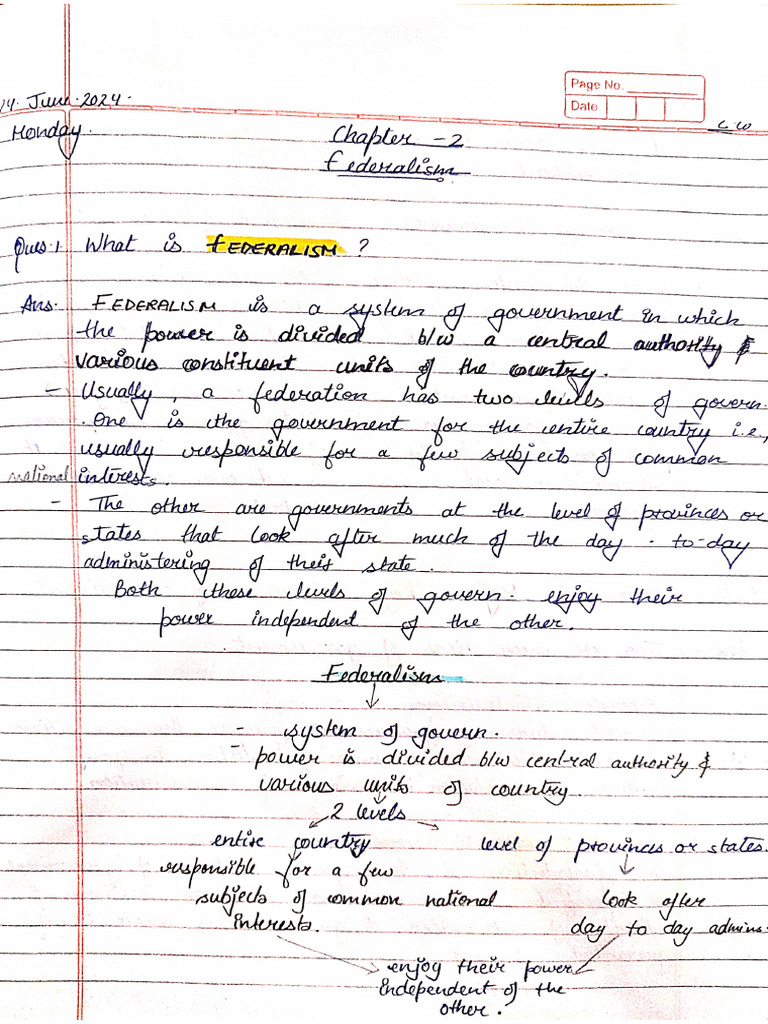 Page No.
Date
14. June. 2024.
Monday.
C.W
Chapter - 2
Federalism
Ques.1 What is FEDERALISM ?
Ans. FEDERALISM is a system of government in which
the power is divided b/w a central authority &
various constituent units of the country.
- Usually, a federation has two levels of govern.
. One is the government for the entire country i.e.,
usually responsible for a few subjects of common
national interests.
- The other are governments at the level of provinces or
states that look after much of the day - to-day
administering of their state.
Both these levels of govern. enjoy their
power independent of the other.
Federalism
- system of govern.
- power is divided b/w central authority &
various units of country.
2 levels
entire country
responsible for a few
subjects of common national
interests.
level of provinces or states.
look after
day to day admins.
enjoy their power
independent of the
other.